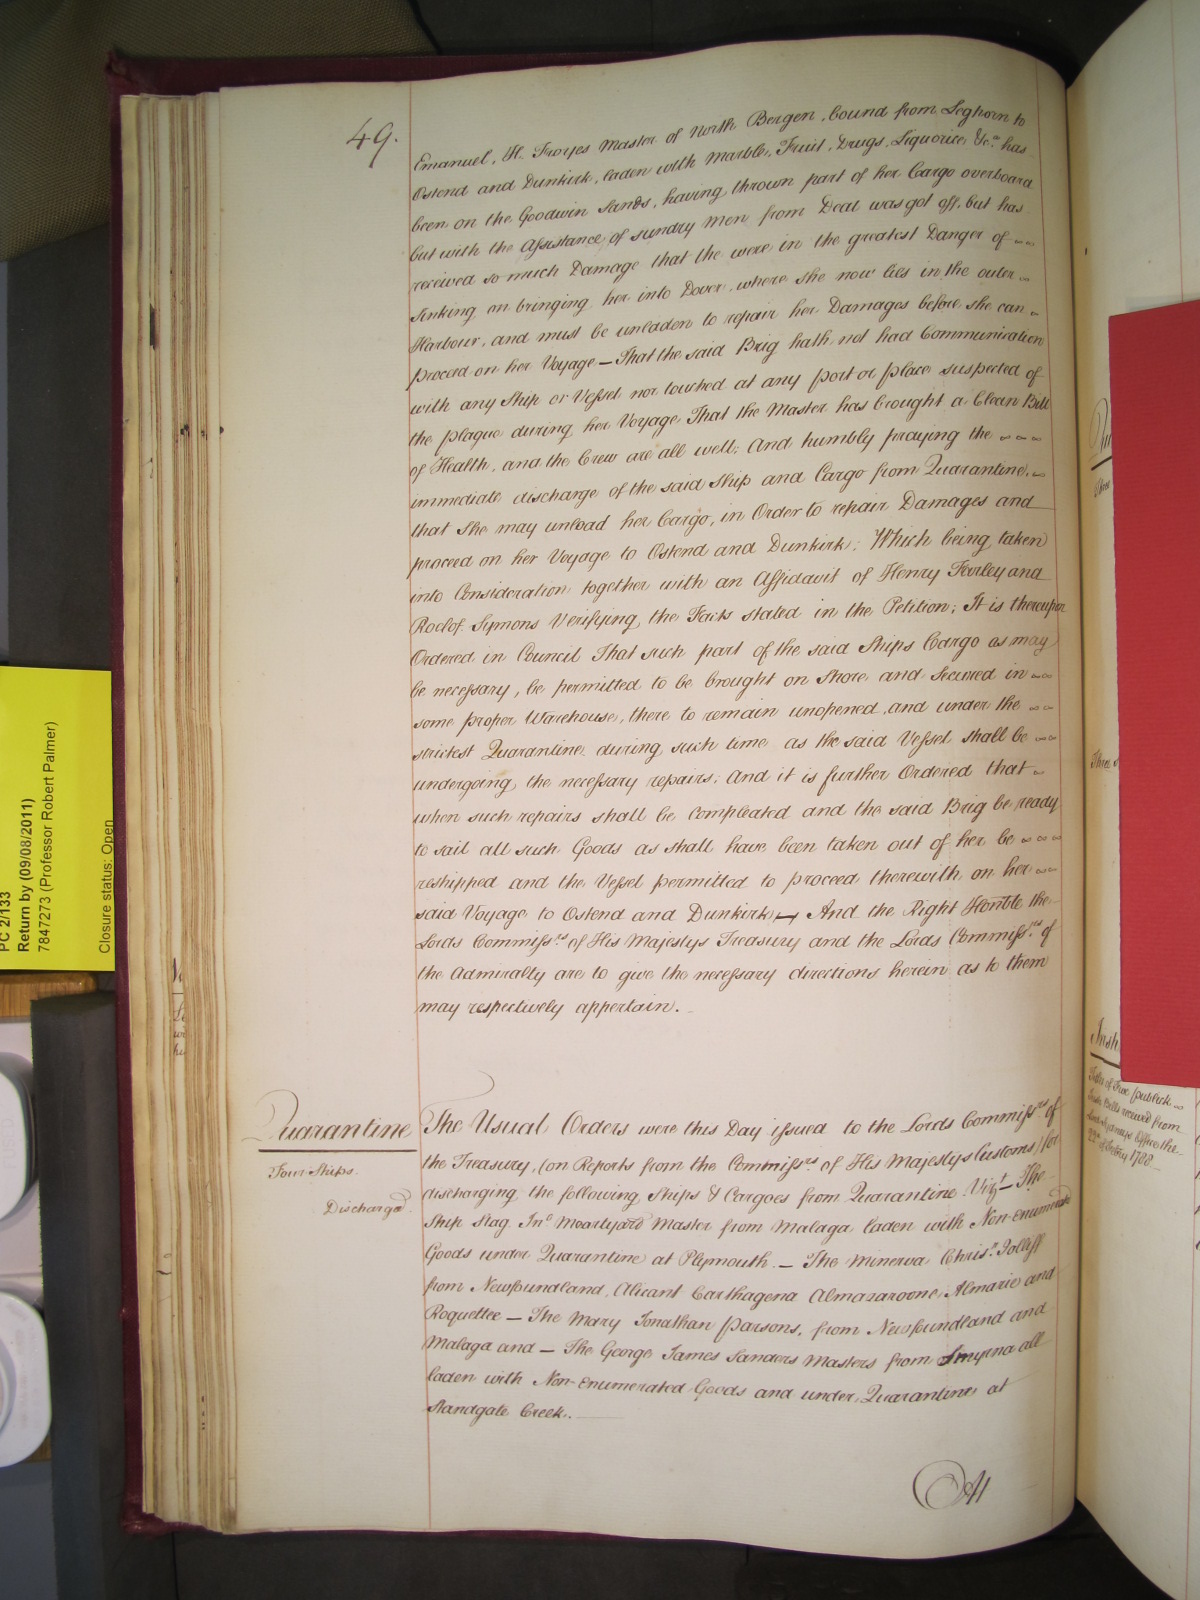 49.
Emanuel, H. Froyes Master of North Bergen, bound from Leghorn to
Ostend and Dunkirk, laden with Marble, Fruit, Drugs, Liquorice, &c.a has
been on the Goodwin Sands, having thrown part of her Cargo overboard
but with the Assistance of sundry Men from Deal was got off, but has
received so much Damage that she were in the greatest Danger of
sinking on bringing her into Dover, where she now lies in the outer
Harbour, and must be unladen to repair her Damages before she can
proceed on her Voyage – That the said Brig hath not had Communication
with any Ship or Vessel nor touched at any port or place suspected of
the plague during her Voyage That the Master has brought a Clean Bill
of Health, and the Crew are all well; And humbly praying the
immediate discharge of the said Ship and Cargo from Quarantine,
that She may unload her Cargo, in Order to repair Damages and
proceed on her Voyage to Ostend and Dunkirk; Which being taken
into Consideration together with an Affidavit of Henry Farley and
Roelof Symons Verifying the Facts stated in the Petition; It is thereupon
Ordered in Council That such part of the said Ships Cargo as may
be necessary, be permitted to be brought on Shore and Secured in
some proper Warehouse, there to remain unopened, and under the
strictest Quarantine during such time as the said Vessel shall be
undergoing the necessary repairs; And it is further Ordered that
when such repairs shall be Compleated and the said Brig be ready
to sail all such Goods as shall have been taken out of her be
reshipped and the Vessel permitted to proceed therewith on her
said Voyage to Ostend and Dunkirk – And the Right Honble the
Lords Commissrs. of His Majestys Treasury and the Lords Commissrs. of
the Admiralty are to give the necessary directions herein as to them
may respectively appertain.
Quarantine
Four Ships
Discharged
The Usual Orders were this Day issued to the Lords Commissrs of
the Treasury, (on Reports from the Commissrs. of His Majestys Customs) for
discharging the following Ships & Cargoes from Quarantine Vizt – The
Ship Stag Jno. Moortyard Master from Malaga laden with Non-enumerated
Goods under Quarantine at Plymouth. – The Minerva Chrisr. Jolliff
from Newfoundland, Alicant Carthagena Almazaroone, Almarie and
Roquettee – The Mary Jonathan Parsons, from Newfoundland and
Malaga and – The George James Sanders Masters from Smyrna all
laden with Non-enumerated Goods and under Quarantine at
Standgate Creek.
At
PC 2/133
Return by (09/08/2011)
7847273 (Professor Robert Palmer)
Closure status: Open